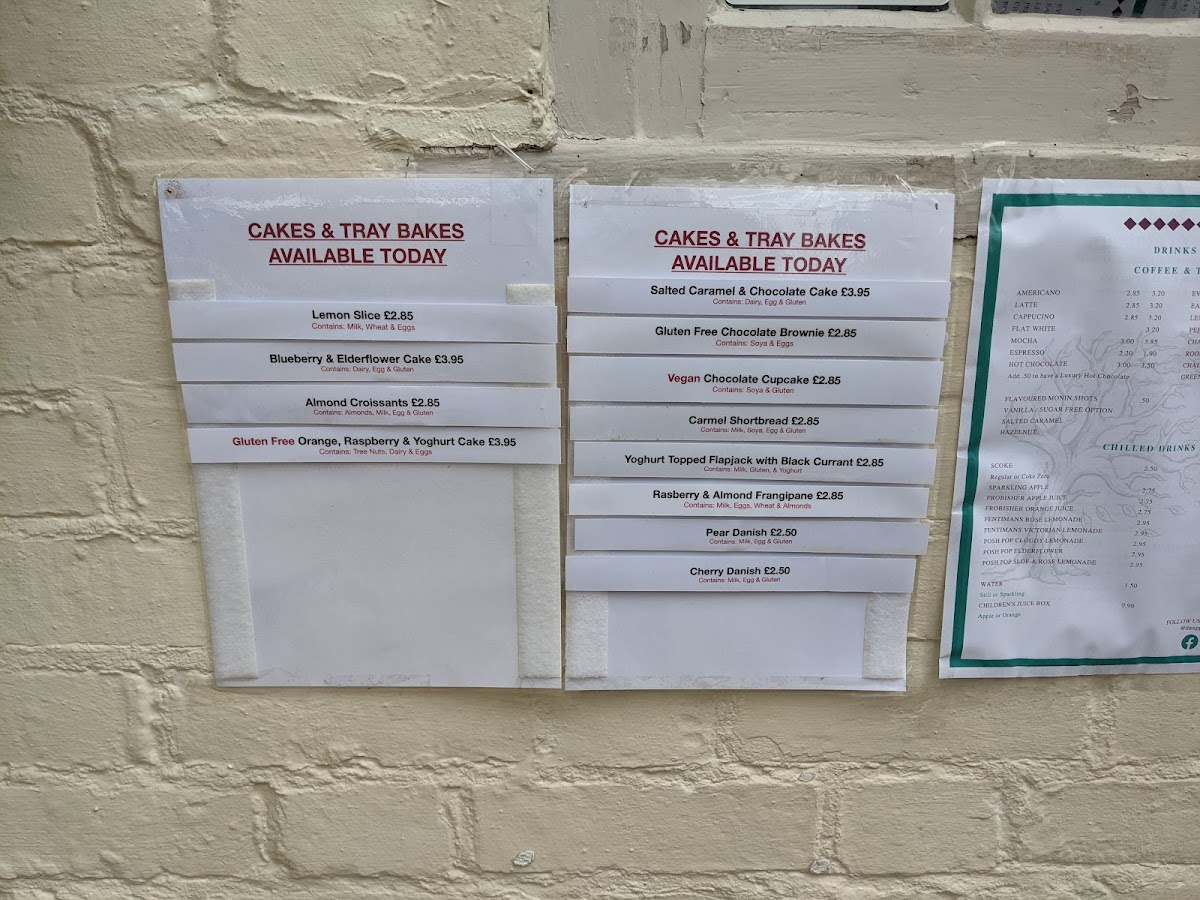 CAKES & TRAY BAKES
AVAILABLE TODAY
Lemon Slice £2.85
Contains: Milk, Wheat & Eggs
Blueberry & Elderflower Cake £3.95
Contains: Dairy, Egg & Gluten
Almond Croissants £2.85
Contains: Almonds, Milk, Egg & Gluten
Gluten Free Orange, Raspberry & Yoghurt Cake £3.95
Contains: Tree Nuts, Dairy & Eggs
CAKES & TRAY BAKES
AVAILABLE TODAY
Salted Caramel & Chocolate Cake £3.95
Contains: Dairy, Egg & Gluten
Gluten Free Chocolate Brownie £2.85
Contains: Soya & Eggs
Vegan Chocolate Cupcake £2.85
Contains: Soya & Gluten
Carmel Shortbread £2.85
Contains: Milk, Soya, Egg & Gluten
Yoghurt Topped Flapjack with Black Currant £2.85
Contains: Milk, Gluten, & Yoghurt
Rasberry & Almond Frangipane £2.85
Contains: Milk, Eggs, Wheat & Almonds
Pear Danish £2.50
Contains: Milk, Egg & Gluten
Cherry Danish £2.50
Contains: Milk, Egg & Gluten
DRINKS
COFFEE & T
AMERICANO 2.85 3.20
LATTE 2.85 3.20
CAPPUCINO 2.85 3.20
FLAT WHITE 3.20
MOCHA 3.00 3.85
ESPRESSO 2.20 1.90
HOT CHOCOLATE 3.00 3.50
Add .50 to have a Luxury Hot Chocolate
FLAVOURED MONIN SHOTS .50
VANILLA / SUGAR FREE OPTION
SALTED CARAMEL
HAZELNUT
CHILLED DRINKS
SCOKE 2.50
Regular or Coke Zero
SPARKLING APPLE 2.75
FROBISHER APPLE JUICE 2.75
FROBISHER ORANGE JUICE 2.75
FENTIMANS ROSE LEMONADE 2.95
FENTIMANS VICTORIAN LEMONADE 2.95
POSH POP CLOUDY LEMONADE 2.95
POSH POP ELDERFLOWER 2.95
POSH POP SLOE & ROSE LEMONADE 2.95
WATER 1.50
Still or Sparkling
CHILDREN'S JUICE BOX 0.90
Apple or Orange
FOLLOW US